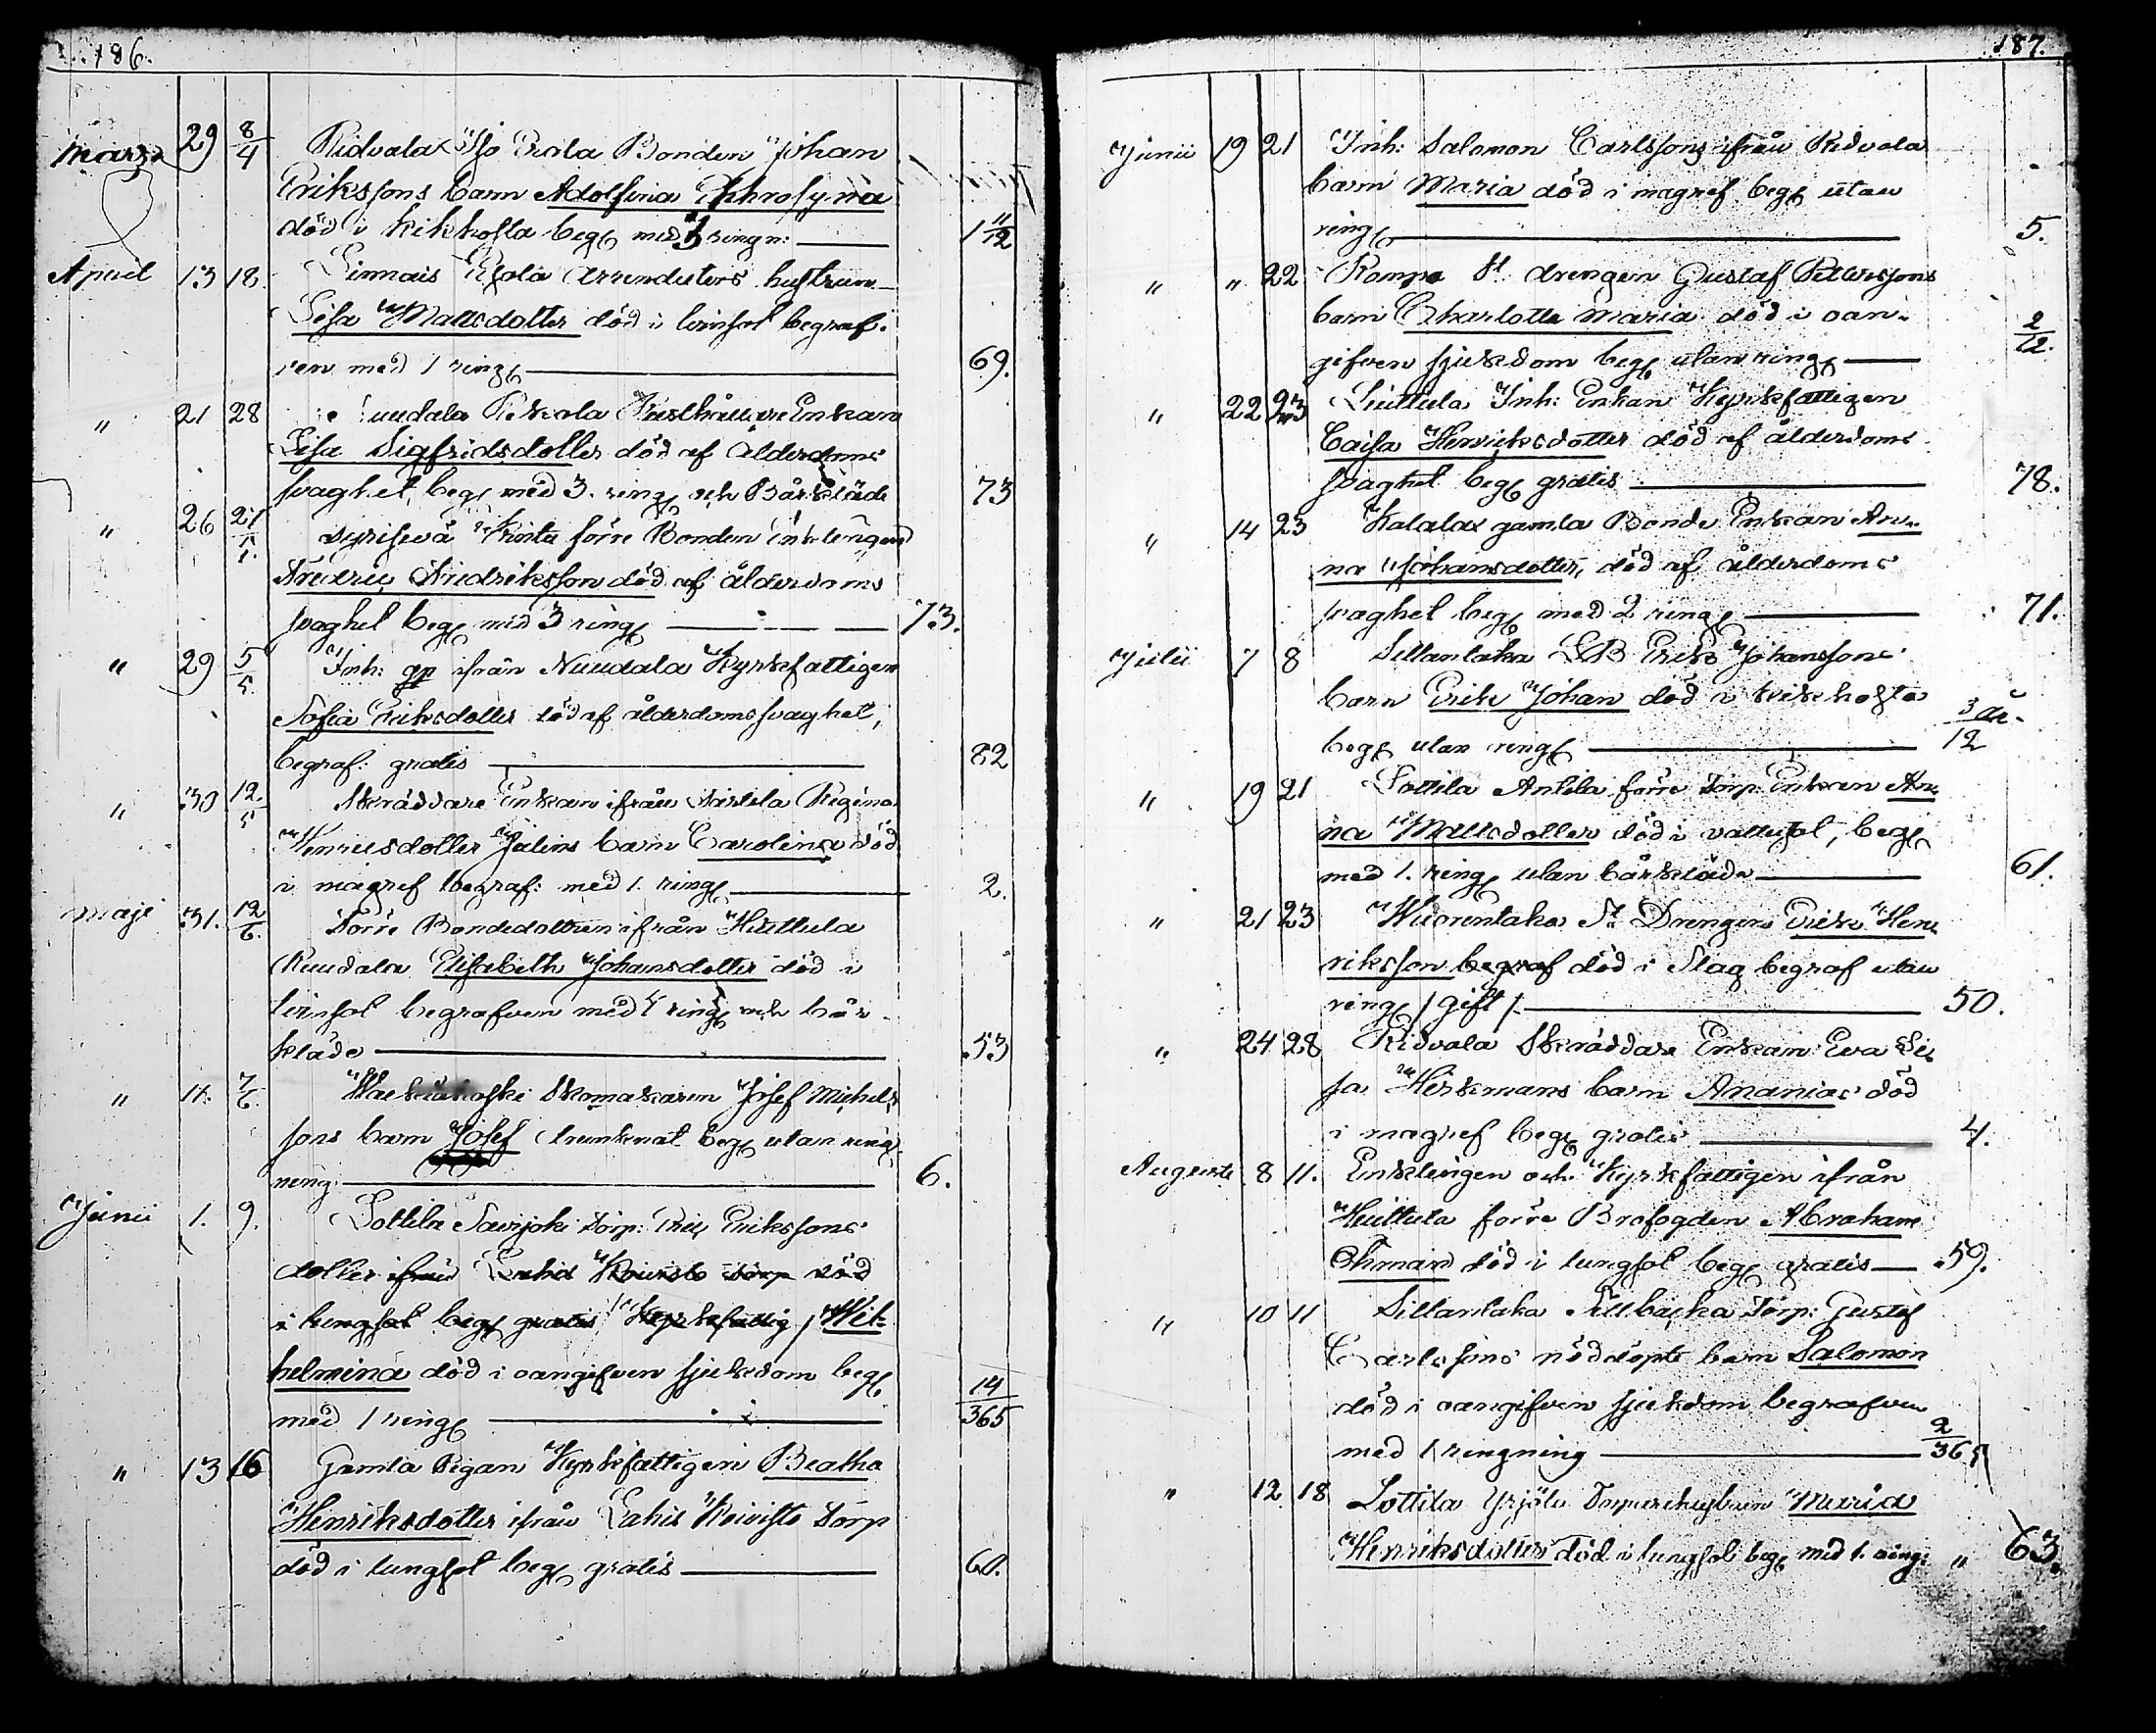 186.
Martz 29 8/4 Ridvala Yso Erola Bonden Johan
Erikssons barn Adolfina Ephrosyna
död i kikhosta beg. med 3 ringn: 1 11/12
April 13 18. Linnais Arrendators hustrun
Lisa Mattsdotter död i bröstsot begraf-
ven med 1 ring. 69.
" 21 28 Enkan
Lisa Sigfridsdotter död af ålderdoms
svaghet, beg. med 3. ring. och Bårkläde 73
" 26 21/5 förre Bonden Enklingen
Fredric Fredriksson död af ålderdoms
svaghet beg. med 3 ring. 73.
" 29 5/5. Inh: gp ifrån Nuudala Kyrkofattigen
Sofia Eriksdotter död af ålderdomssvaghet,
begraf: gratis 82
" 30 12./5 Skräddare Enkan ifrån Regina
Henricsdotter Julins barn Carolina död
i magref begraf: med 1. ring. 2.
Maji 31. 12/6. Förre Bondedottren ifrån Huittula
Ruudala Elisabeth Johansdotter död i
begrafven med 4 ring. och bår-
kläde 53
" 4. 7/6. Skomakaren Josef Michels-
sons barn Josef drunknat beg. utan ring-
ning. 6.
Junii 1. 9. Lottila Savijoki Torp: Eric Erikssons
dotter ifrån Lahis Koivisto torp död
i lungsot beg. gratis / Kyrkofattig / Wil-
helmina död i oangifven sjukdom beg.
med 1 ring. 14/365
" 13 16 Gamla Pigan Kyrkofattigen Beatha
Henriksdotter ifrån Lahis Koivisto Torp
död i lungsot beg. gratis 60.
187.
Junii 19 21 Inh: Salomon Carlssons ifrån Ridvala
barn Maria död i magref beg. utan
ring. 5.
" " 22 Rompa St. drengen Gustaf Pettersons
barn Charlotta Maria död i oan-
gifven sjukdom beg. utan ring. 2/12.
" 22 23 Liuttula Inh: Enkan Kyrkofattigen
Caisa Henricksdotter död af ålderdoms
svaghet beg. gratis 78.
" 14 23 Kalalax gamla Bonde Enkan An-
na Johansdotter, död af ålderdoms
svaghet beg. med 2 ring. 71.
Julii 7 8 Sillantaka Erik Johanssons
barn Erik Johan död i kikhosta
beg. utan ring. 3/12 år.
" 19 21 Lottila Anttila förre Torp: Enkan An-
na Mattsdotter död i vattusot, beg.
med 1. ring. utan bårkläde 61.
" 21 23 Wuorentaka St. Drengen Erik Hen-
riksson begraf död i Slag begraf utan
ring. / gift / 50.
" 24 28 Ridvala Skräddare Enkan Eva Li-
sa Hirkmans barn Ananias död
i magref beg. gratis 4.
Augusti 8 11. Enklingen och Kyrkfattigen ifrån
Huittula förre Brofogden Abraham
Öhman död i lungsot beg. gratis 59.
" 10 11 Sillantaka Torp: Gustaf
Carlssons nöddöpte barn Salomon
död i oangifven sjukdom begrafven
med 1 ringning 2/365
" 12 18 Lottila Yrjölä Maria
Henriksdotter död i lungsot beg. med 1. ring: " 63.